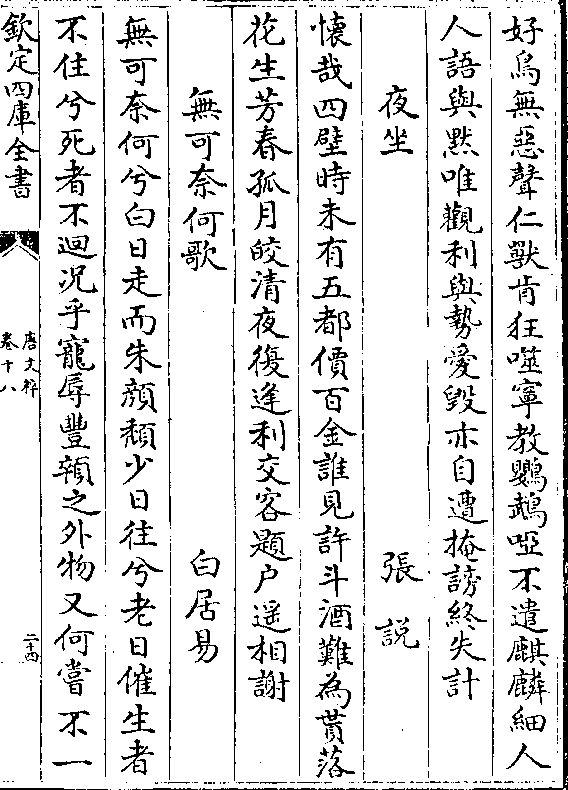 好鳥無惡聲仁獸肯狂噬寧教鸚鵡啞不遣麒麟細人
人語與黙唯觀利與勢愛毀亦自遭掩謗終失計
夜坐 張說
懐哉四壁時未有五都價百金誰見許斗酒難為貰落
花生芳春孤月皎清夜復逢利交客題户遥相謝
無可奈何歌 白居易
無可奈何兮白日走而朱顔頽少日往兮老日催生者
不住兮死者不迴况乎寵辱豐顇之外物又何嘗不一
欽定四庫全書
唐文粹
卷十八
二十四